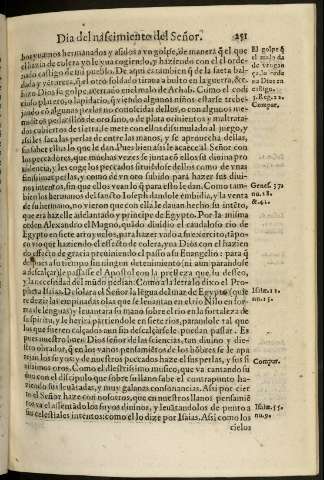 Dia del nascimiento del Señor. 251
bos vamos hermanados y asidos a vn golpe, de manera q̃ el que
el lança de colera yo le vua cogiendo, y haziendo con el el orde-
nado castigo de mi pueblo. De aqui es tambien q̃ de la saeta bal-
dada y vertiz, q̃ el otro soldado tiraua a bulto en la guerra, &c.
hizo Dios su golpe, acertado en el mal de Achab. Como el codi
cioso platero, o lapidario, q̃ viendo algunos niños estarse trebe-
jando cõ algunas perlas no conocidas dellos, o con algunos me-
nudicos pedacillos de oro fino, o de plata orinientos y maltrata-
dos cubiertos de tierra, se mete con ellos dissimulado al juego, y
assi les saca las perlas de entre las manos, y se aprouecha dellas,
sin saber ellos lo que le dan. Pues bien assi le acaece al Señor con
los peccadores, que muchas vezes se junta cõ ellos su diuina pro
uidencia, y les coge los peccados suzissimos dellos como de vnas
finissimas perlas, y como de vn oro subido para hazer sus diui-
nos intentos, sin que ellos vean lo q̃ para esto le dan. Como tam-
bien los hermanos del sancto Ioseph dandole embidia, y la venta
de su hermano, no vieron que con ella le dauan hecho su intẽto,
que era hazelle adelantado y principe de Egypto. Por la misma
orden Alexandro el Magno, quãdo diuidio el caudaloso rio de
Egypto en siete arroyuelos, para hazer vado a su exercito, tãpo-
co vio que haziendo el effecto de colera, yua Dios con el hazien
do effecto de gracia preuiniendo el passo a su Euangelio: para q̃
despues a su tiempo sin ningun detenimiento (ni aun parandose
a descalçar) le passasse el Apostol con la presteza que lu desseo,
y la necessidad del mundo pedian. Como a la letra lo dixo el Pro-
pheta Isaias. Desolara el Señor la lẽgua del mar de Egypto (q̃ es
re dezir las empinadas olas que se leuantan en el rio Nilo en for-
ma de lenguas) y leuantara su mano sobre el rio en la fortaleza de
su spiritu, y le herira partiendole en siete rios, parandole tal que
los que fueren calçados aun sin descalçarse le puedan passar. Es
pues nuestro buen Dios señor de las sciencias, tan diuino y die-
stro obrador, q̃ en los vanos pensamiẽtos de los hõbres se le apa
rejan los suyos; y de nuestros peccados haze el sus perlas, y sus fi
nissimos oros. Como el diestrissimo musico, que va cantando su
duo con el discipulo que sobre su llano sabe el contrapunto ha-
ziendo sus leuãtadas, y muy galanas consonancias. Assi por cier
to el Señor haze con nosotros, que en nuestros llanos pensamiẽ
tos va el assentãdo los suyos diuinos, y leuãtandolos de punto a
sus celestiales intentos: como el lo dize por Isaias. Assi como los
cielos
El golpe q̃
el malo da
de vengan
ça, lo ordẽ
na Dios en
castigo.
3. Reg. 22.
Compar.
Genes. 37.
nu. 18.
& 41.
Isai. 11.
nu. 15.
Compar.
Isai. 55.
nu. 9.